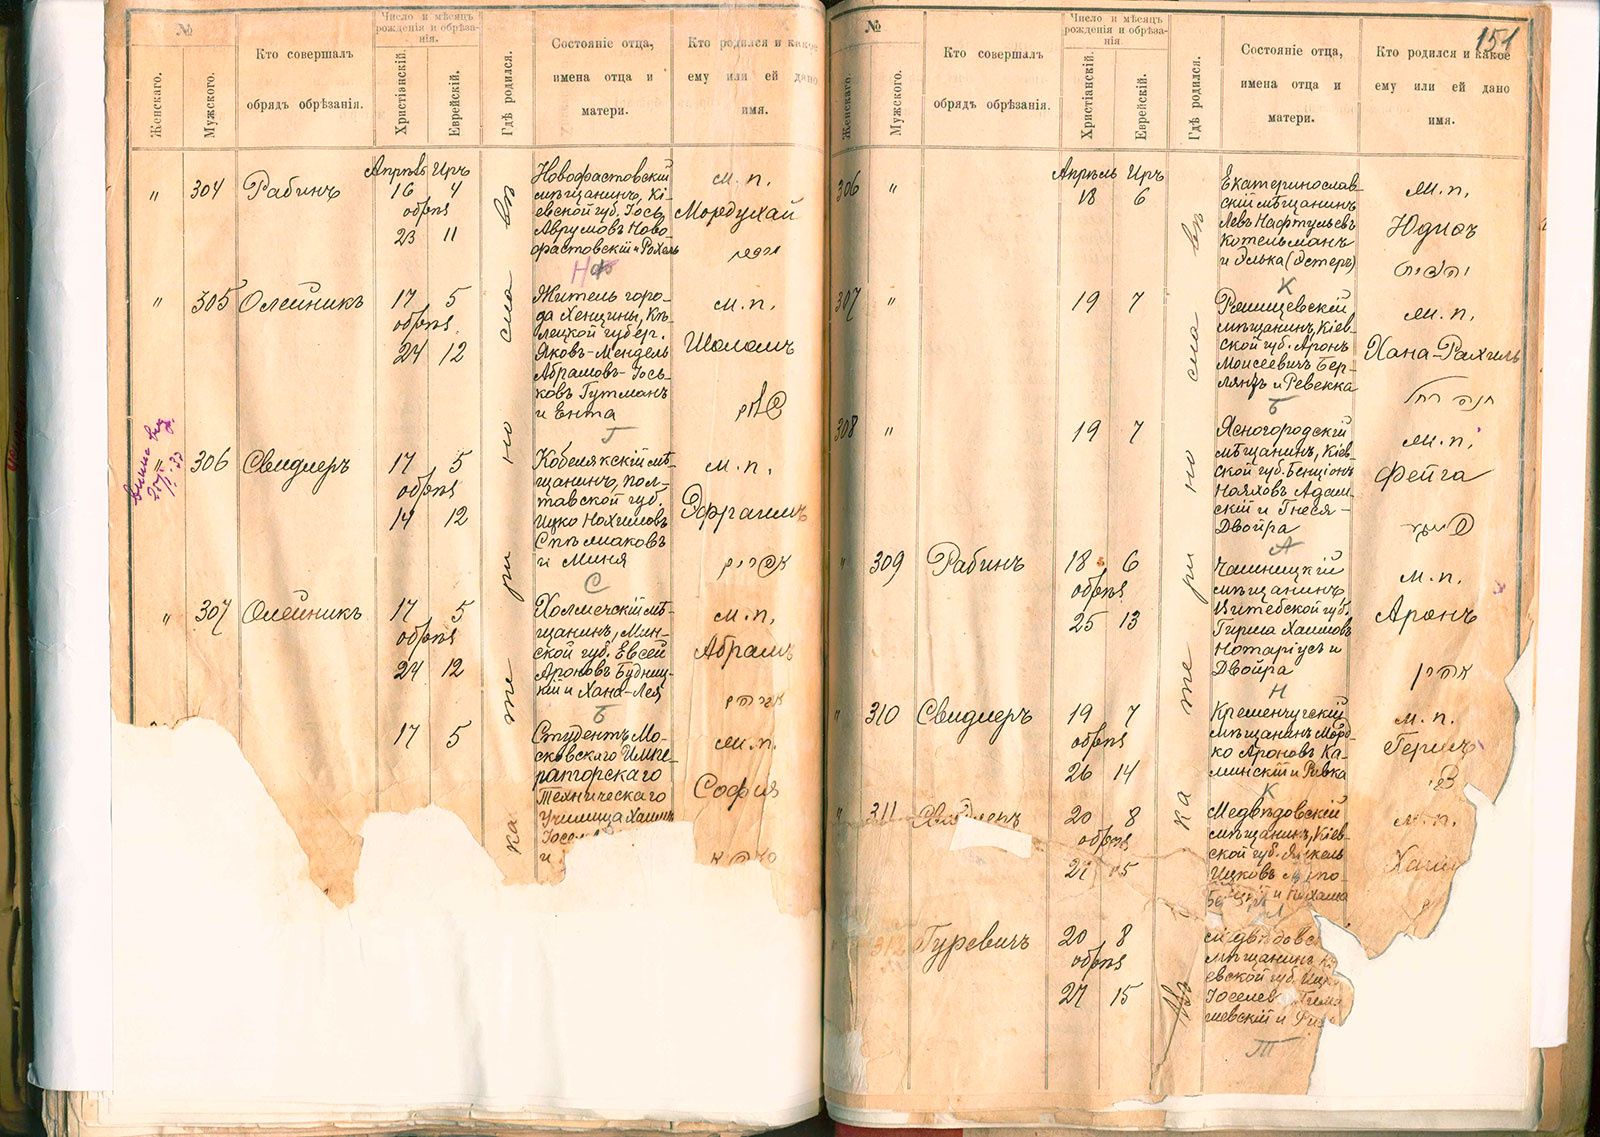 №
Женскаго.
Мужского.
Кто совершалъ
обрядъ обрѣзанія.
Число и мѣсяцъ
рожденія и обрѣза-
нія.
Христіанскій.
Еврейскій.
Гдѣ родился.
Состояніе отца,
имена отца и
матери.
Кто родился и какое
ему или ей дано
имя.
" 304 Рабинъ
Апрѣль Иръ
16 4
обрѣз
23 11
Новофастовскій
мѣщанинъ, Кі-
евской губ. Іось
Аврумовъ Ново-
фастовскій и Рохель
м.п.
Мордухай
מרדכי
Нф
" 305 Олейникъ
17 5
обрѣз
24 12
Житель горо-
да Хенцины, Кѣ-
лецкой губер.
Яковъ-Мендель
Абрамовъ-Іось-
ковъ Гутманъ
и Ента
м.п.
Шоломъ
שלום
Г
" 306 Свидлеръ
17 5
обрѣз
14 12
Кобелякскій мѣ-
щанинъ, Пол-
тавской губ.
Ицко Нохимовъ
и Миня
м.п.
Эфраимъ
אפרים
С
" 307 Олейникъ
17 5
обрѣз
24 12
Холмечскій мѣ-
щанинъ, Мин-
ской губ. Евсей
Ароновъ Будниц-
кій и Хана-Лея
м.п.
Абрамъ
אברהם
Б
17 5
Студентъ Мо-
сковскаго Импе-
раторскаго
Техническаго
училища Хаимъ
Іосел
и
м.п.
София
ка же ри но сла въ
151
№
Женскаго.
Мужского.
Кто совершалъ
обрядъ обрѣзанія.
Число и мѣсяцъ
рожденія и обрѣза-
нія.
Христіанскій.
Еврейскій.
Гдѣ родился.
Состояніе отца,
имена отца и
матери.
Кто родился и какое
ему или ей дано
имя.
306 "
Апрѣль Иръ
18 6
Екатеринослав-
скій мѣщанинъ
Левъ Нафтульевъ
Котельманъ
и Элька (Эстеръ)
м.п.
Юдиѳь
יהודית
К
307 "
19 7
мѣщанинъ, Кіев-
ской губ. Аронъ
Моисеевичъ Бер-
и Ревекка
м.п.
Хана-Рахиль
חנה רחל
Б
308 "
19 7
Ясногородскій
мѣщанинъ, Кіев-
ской губ. Бенціонъ
Адам-
скій и Гнеся-
Двойра
м.п.
Фейга
פייגא
А
" 309 Рабинъ
18 6
обрѣз
25 13
Чашницкій
мѣщанинъ
Витебской губ.
Гирша Хаимовъ
Нотаріусъ и
Двойра
м.п.
Аронъ
אהרן
Н
" 310 Свидлеръ
19 7
обрѣз
26 14
Кременчугскій
мѣщанинъ Морд-
ко Ароновъ Ка-
минскій и Ривка
м.п.
Гершъ
צבי
К
" 311 Свидлеръ
20 8
обрѣз
27 15
Медвѣдовскій
мѣщанинъ, Кіев-
ской губ. Янкель
Ицковъ
м.п.
Хаим
312 Гуревичъ
20 8
обрѣз
27 15
Медвѣдовс
мѣщанинъ Кі
евской губ. Ицк
Іоселев
шевскій и
Т
ка же ри но сла въ